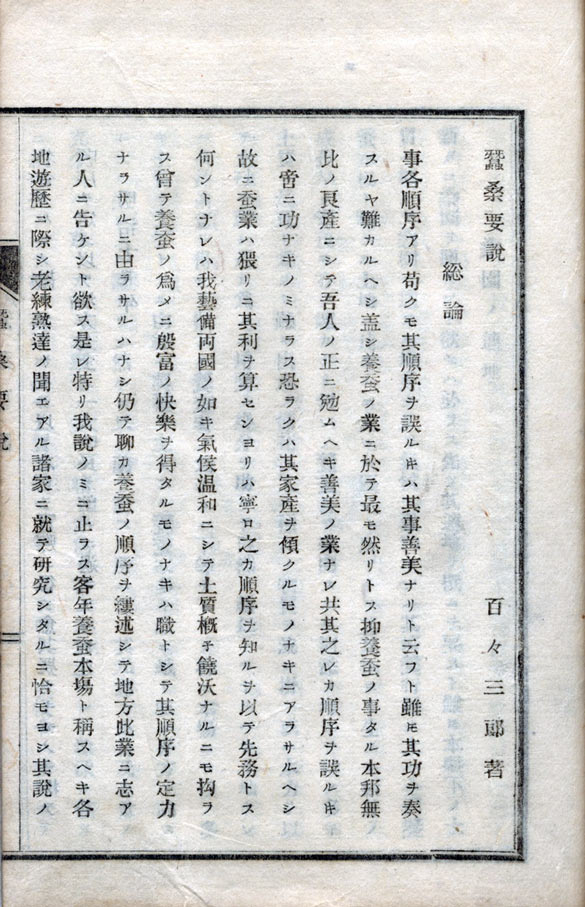 蠶桑要說
百々三郎著
総論
事各順序アリ苟クモ其順序ヲ誤ルキハ其事善美ナリト云フト雖モ其功ヲ奏
スルヤ難カルヘシ盖シ養蚕ノ業ニ於テ最モ然リトス抑養蚕ノ事タル本邦無
比ノ良產ニシテ吾人ノ正ニ勉ムヘキ善美ノ業ナレ共其之レカ順序ヲ誤ルキ
ハ啻ニ功ナキノミナラス恐ラクハ其家產ヲ傾クルモノナキニアラサルヘシ
故ニ蚕業ハ猥リニ其利ヲ算センヨリハ寧ロ之カ順序ヲ知ルヲ以テ先務トス
何ントナレハ我藝備両國ノ如キ氣侯温和ニシテ土質槪子饒沃ナルニモ拘ラ
ス曾テ養蚕ノ爲メニ殷富ノ快樂ヲ得タルモノナキハ職トシテ其順序ノ定力
ナラサルニ由ラサルハナシ仍テ聊カ養蚕ノ順序ヲ縷述シテ地方此業ニ志ア
ル人ニ告ケント欲ス是レ特リ我說ノミニ止ラス客年養蚕本場ト稱スヘキ各
地遊歷ニ際シ老練熟達ノ聞エアル諸家ニ就テ研究シタルニ恰モヨシ其說ノ
蠶桑要說